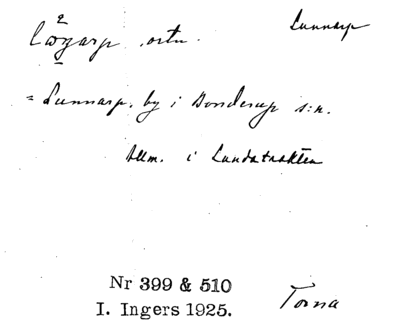 Lunnarp
ortn.
= Lunnarp, by i Bonderup s:n.
Allm. i Lundatrakten
Nr 399 & 510
I. Ingers 1925.
Torna